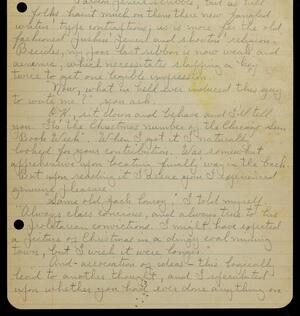 Pardon pencil scribble, but us held
folks hain't much on them there new fangled
writin' type contraptions; us is more of the old
fashioned 'gusher' pencil and shootin' religion.
Besides, my poor last ribbon is now weak and
anaemic, which necessitates slapping a key
twice to get one legible impression.
"Now, what in hell ever induced this guy
to write me?" you ask.
O.K., sit down and behave and I'll tell
you. It's the Christmas number of the Chicago Sun
"Book Week". When I got it I naturally
looked for your contribution. Was somewhat
apprehensive upon locating 'finally' way in the back.
But upon reading it I assure you I experienced
genuine pleasure.
"Same old Jack Conroy," I told myself.
"Always class conscious, and always true to his
proletarian convictions. I might have expected
a picture of Christmas in a dingy coal mining
town, but I wish it were longer."
And - association of ideas - this logically
lead to another thought, and I speculated
upon whether you have ever done anything on